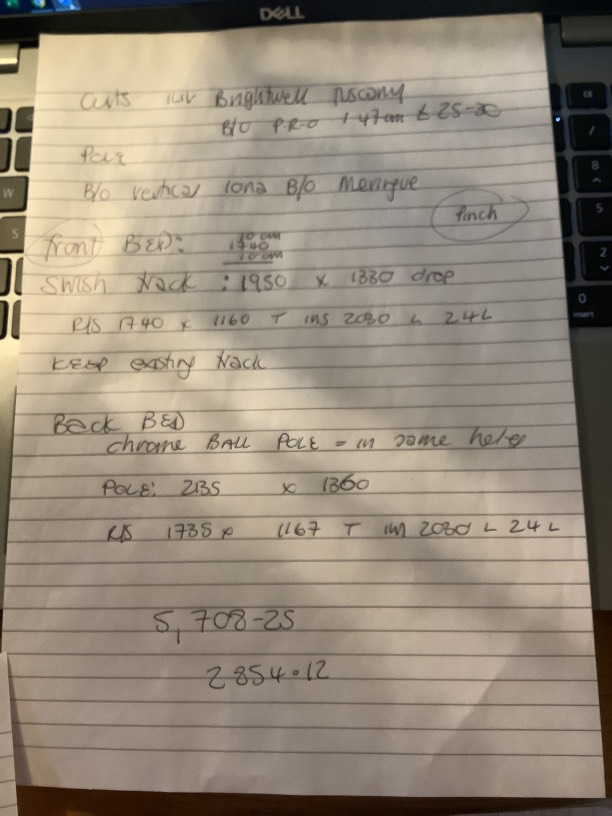 DELL
Brightwell
B/O P.R-O 147cm £ 25-20
Pair
B/O vertical B/O
Pinch
front BED: 10 cm
1740
10 cm
Swish track : 1950 x 1330 drop
R/S 1740 x 1160 T IMS 2080 L 24L
KEEP existing track
Back BED
chrome BALL POLE = in same holes
POLE: 2135 x 1360
R/S 1735 x 1167 T IM 2080 L 24L
5,708-25
2854.12